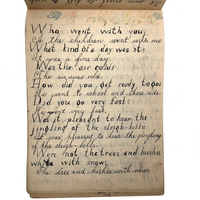 Who went with you,
The children went with me
What kind of a day was it:
It was a fine day.
Was the air cold:
The air was cold.
How did you get ready to go:
We went to school and
Did you go very fast:
We went very fast.
Was it pleasant to hear the
jingling of the sleigh-bells
It was pleasant to hear the jingling
of the sleigh-bells.
Were not the trees and bushes
white with snow;
The trees and bushes with when